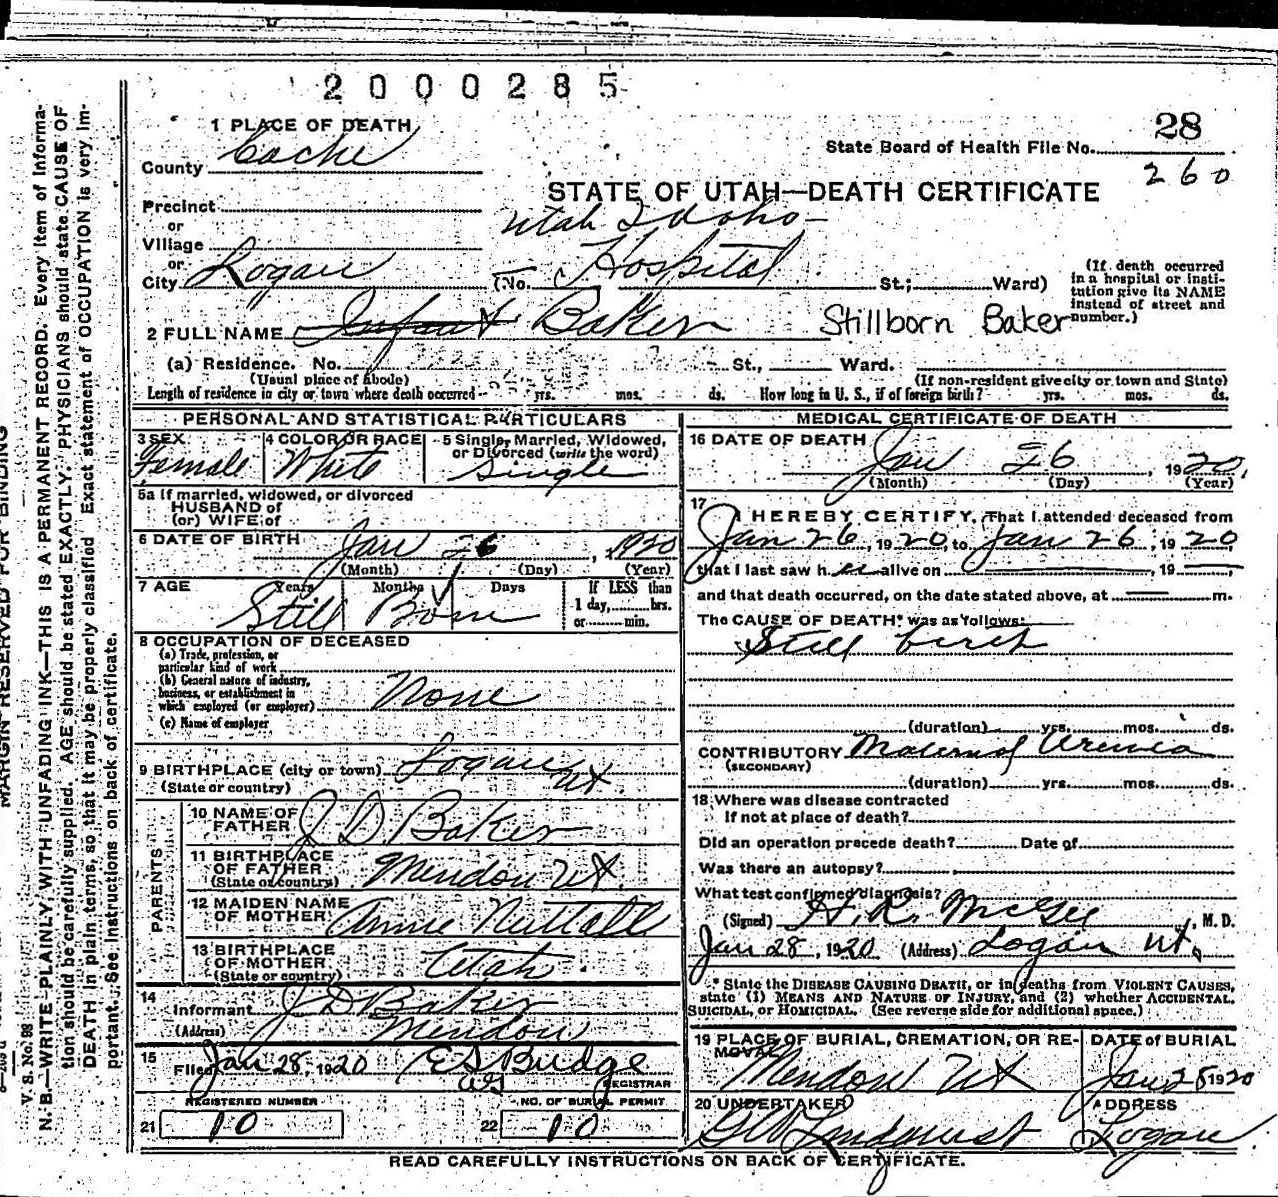 2000285
1 PLACE OF DEATH
County Cache
State Board of Health File No. 28
260
STATE OF UTAH—DEATH CERTIFICATE
Precinct
or
Village
Utah Idaho
or
City Logan (No. Hospital St.; Ward)
(If death occurred in a hospital or insti-
tution give its NAME
instead of street and
number.)
2 FULL NAME Infant Baker Stillborn Baker
(a) Residence. No. St., Ward.
(Usual place of abode) (If non-resident give city or town and State)
Length of residence in city or town where death occurred yrs. mos. ds. How long in U. S., if of foreign birth? yrs. mos. ds.
PERSONAL AND STATISTICAL PARTICULARS
3 SEX 4 COLOR OR RACE 5 Single, Married, Widowed,
or Divorced (write the word)
Female White Single
5a If married, widowed, or divorced
HUSBAND of
(or) WIFE of
6 DATE OF BIRTH Jan 26, 1920
(Month) (Day) (Year)
7 AGE Years Months Days If LESS than
1 day, hrs.
or min.
Still Born
8 OCCUPATION OF DECEASED
(a) Trade, profession, or
particular kind of work
(b) General nature of industry,
business, or establishment in
which employed (or employer) None
(c) Name of employer
9 BIRTHPLACE (city or town) Logan
(State or country) Ut
PARENTS
10 NAME OF
FATHER J D Baker
11 BIRTHPLACE
OF FATHER Mendon Ut.
(State or country)
12 MAIDEN NAME
OF MOTHER Annie Nuttall
13 BIRTHPLACE
OF MOTHER Utah.
(State or country)
14
Informant J D Baker
(Address) Mendon
15
Filed Jan 28, 1920 E S Budge
REGISTRAR
REGISTERED NUMBER NO. OF BURIAL PERMIT
21 10 22 10
MEDICAL CERTIFICATE OF DEATH
16 DATE OF DEATH Jan 26, 1920
(Month) (Day) (Year)
17
I HEREBY CERTIFY, That I attended deceased from
Jan 26, 1920, to Jan 26, 1920
that I last saw h er alive on , 19
and that death occurred, on the date stated above, at m.
The CAUSE OF DEATH* was as follows:
Still birth
(duration) yrs. mos. ds.
CONTRIBUTORY Maternal Uremia
(SECONDARY)
(duration) yrs. mos. ds.
18 Where was disease contracted
If not at place of death?
Did an operation precede death? Date of
Was there an autopsy?
What test confirmed diagnosis?
(Signed) H. R. McGee, M. D.
Jan 28, 1920 (Address) Logan Ut.
* State the DISEASE CAUSING DEATH, or in deaths from VIOLENT CAUSES,
state (1) MEANS AND NATURE OF INJURY, and (2) whether ACCIDENTAL,
SUICIDAL, or HOMICIDAL. (See reverse side for additional space.)
19 PLACE OF BURIAL, CREMATION, OR RE-
MOVAL DATE of BURIAL
Mendon Ut Jan 28 1920
20 UNDERTAKER ADDRESS
G W Lindquist Logan
READ CAREFULLY INSTRUCTIONS ON BACK OF CERTIFICATE.
MARGIN RESERVED FOR BINDING
V. S. No. 98
N. B.—WRITE PLAINLY, WITH UNFADING INK—THIS IS A PERMANENT RECORD. Every item of informa-
tion should be carefully supplied. AGE should be stated EXACTLY. PHYSICIANS should state CAUSE OF
DEATH in plain terms, so that it may be properly classified. Exact statement of OCCUPATION is very im-
portant. See instructions on back of certificate.